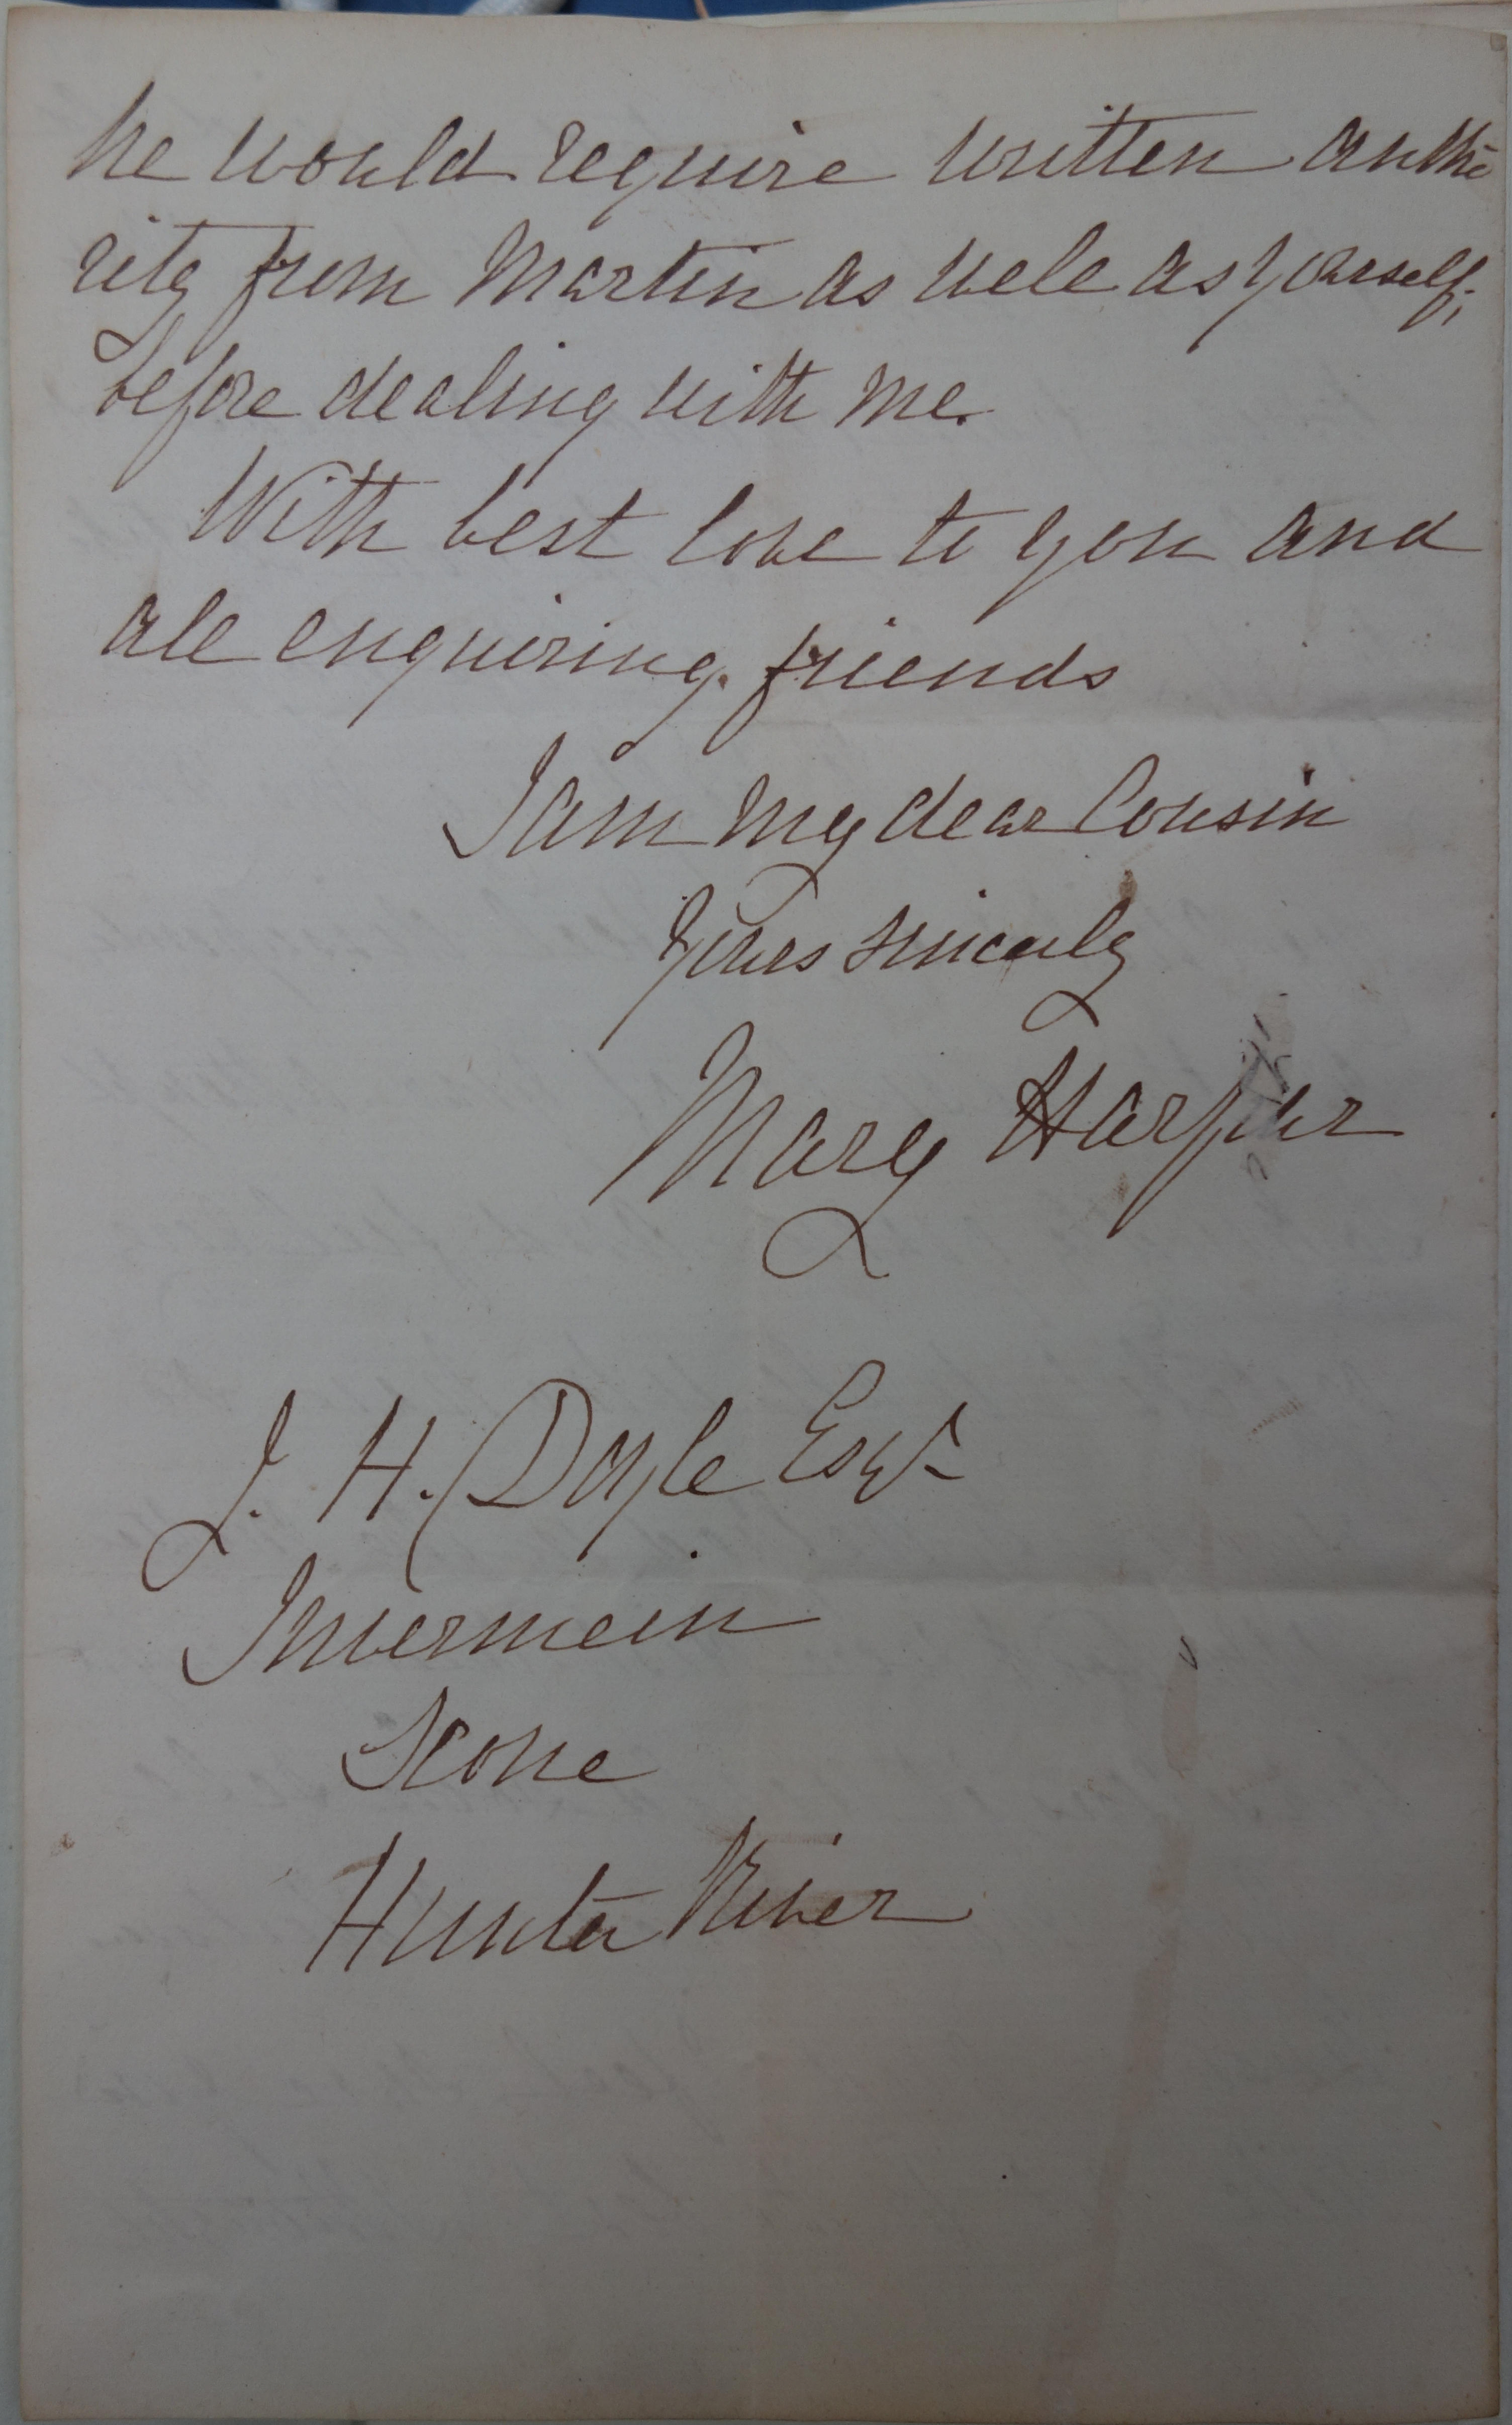 he would require written autho
rity from Martin as well as yourself,
before dealing with me.
With best love to you and
all enquiring friends
I am My dear Cousin
Yours sincerely
Mary Harper
J. H. Doyle Esqr
Invermein
Scone
Hunter River